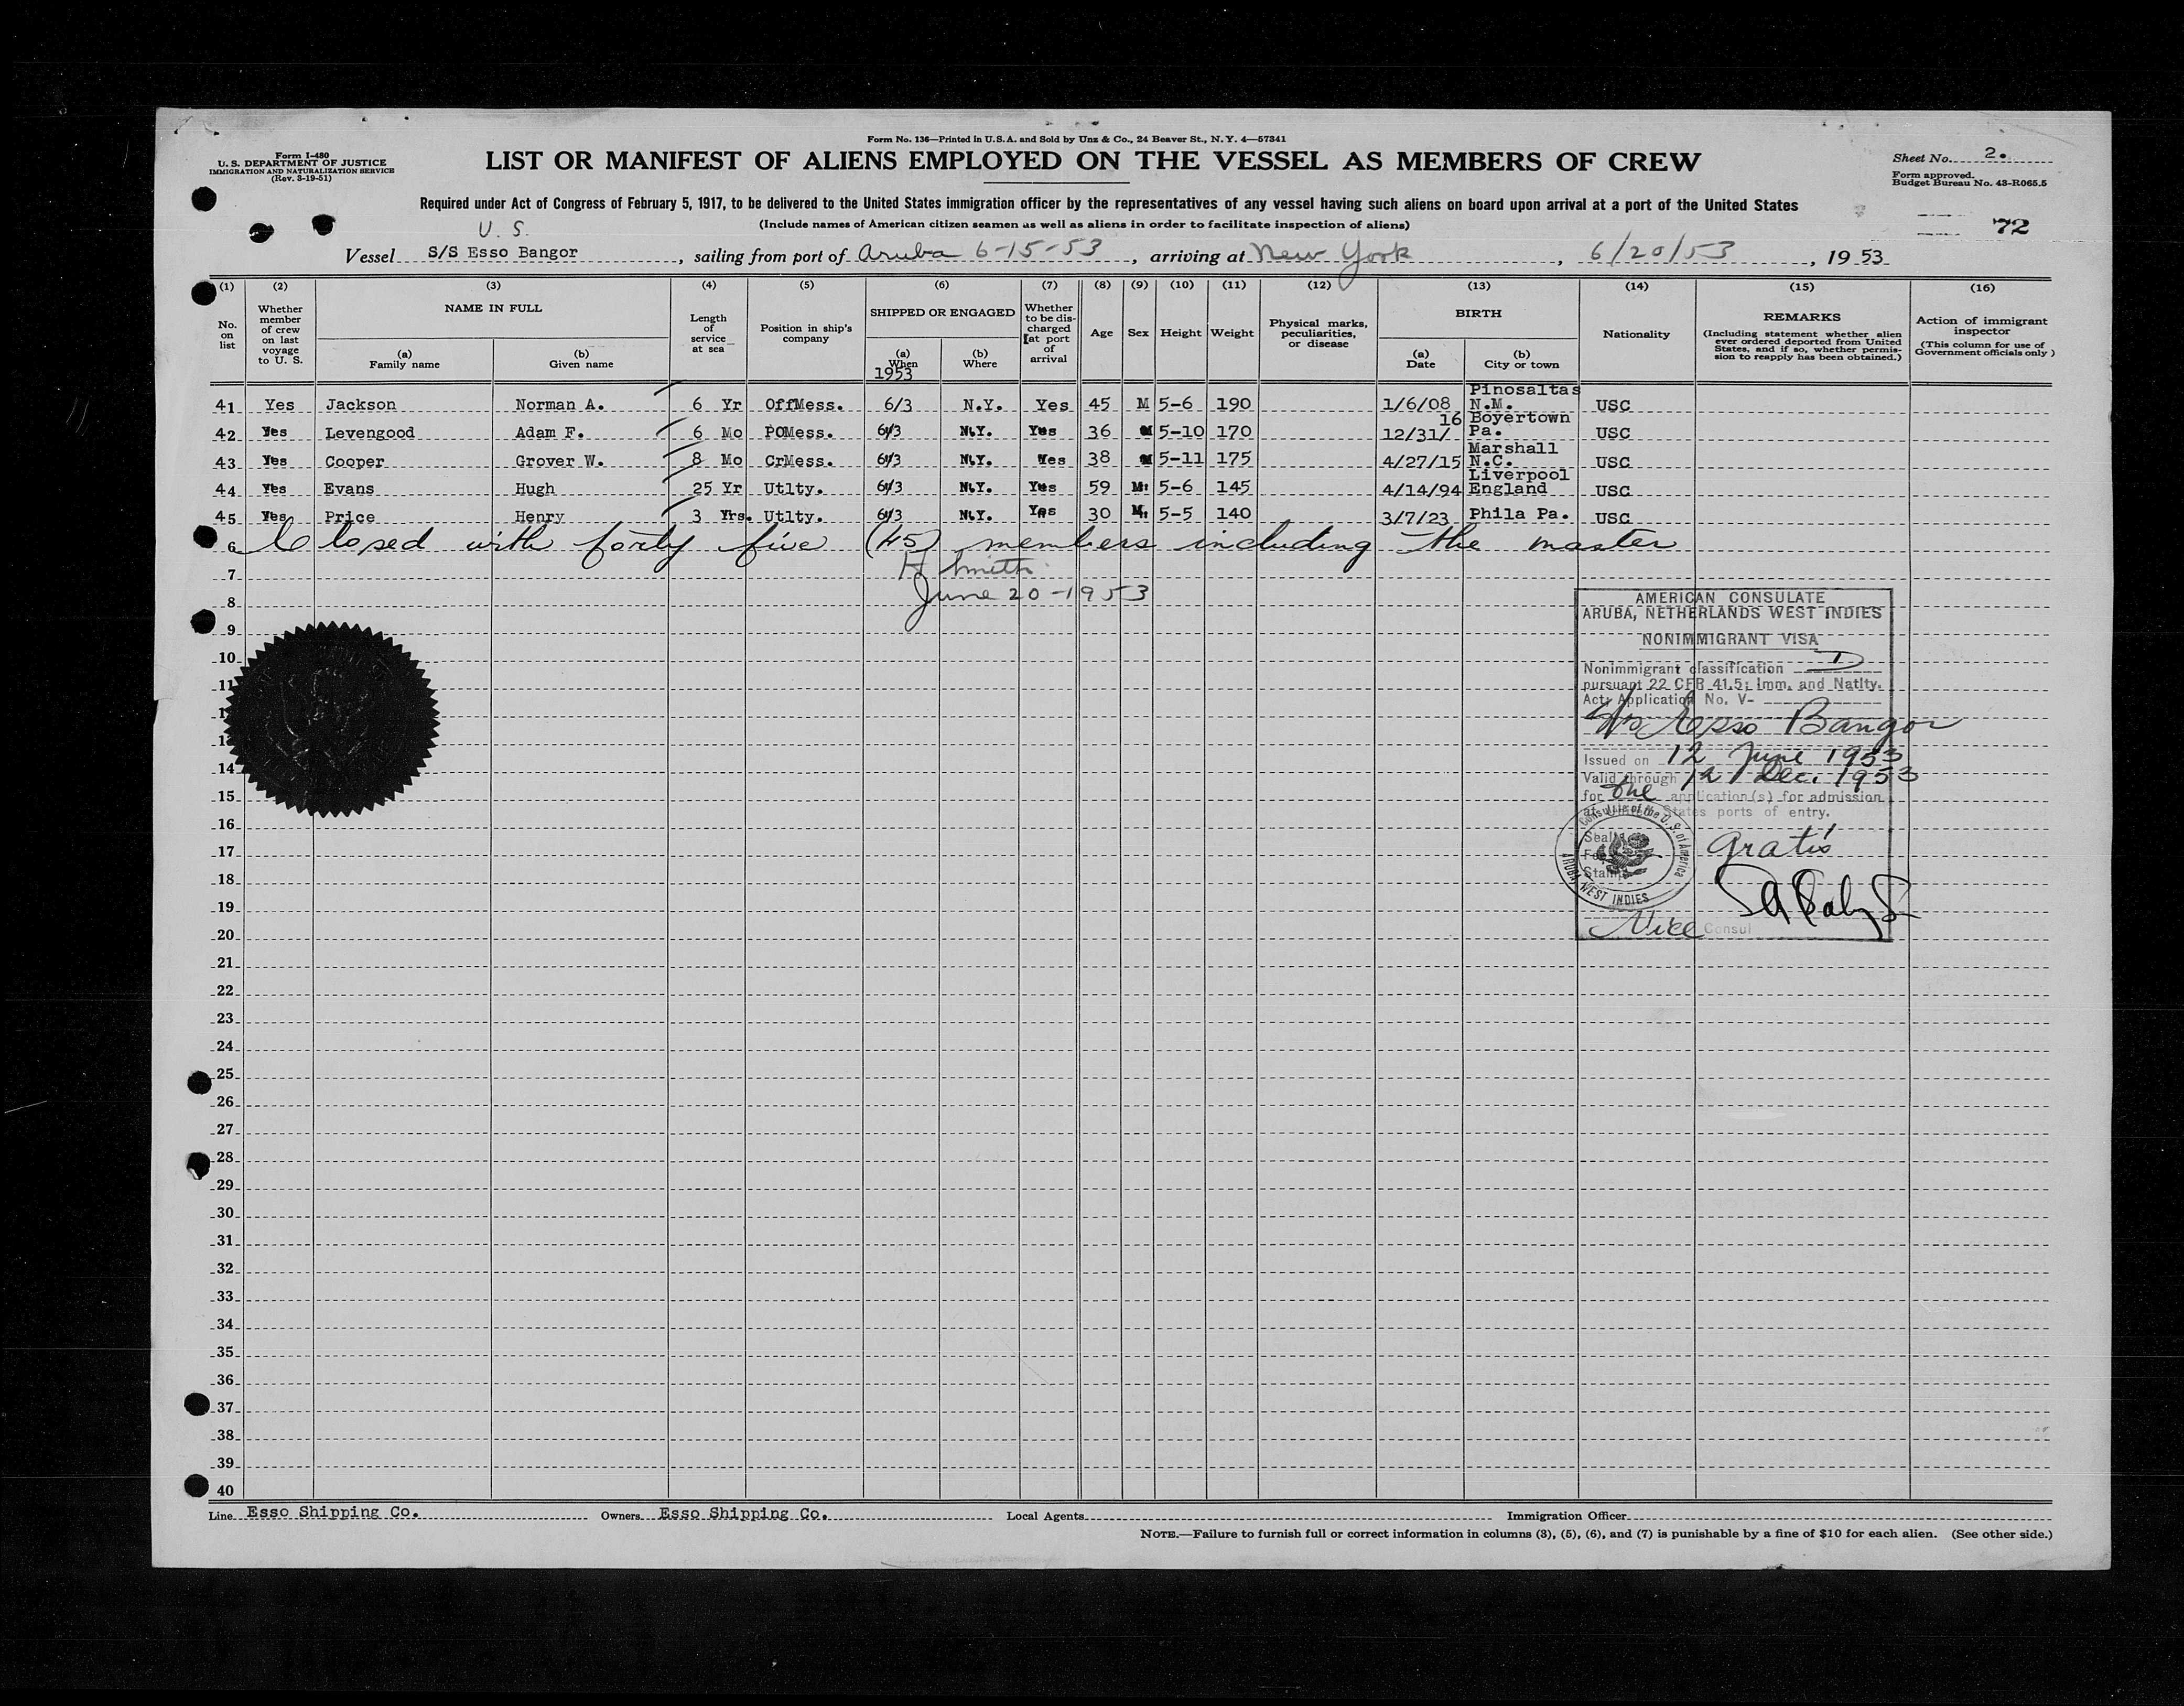 Form No. 136—Printed in U.S.A. and Sold by Unz & Co., 24 Beaver St., N. Y. 4—57341
Form I-480
U. S. DEPARTMENT OF JUSTICE
IMMIGRATION AND NATURALIZATION SERVICE
(Rev. 3-19-51)
LIST OR MANIFEST OF ALIENS EMPLOYED ON THE VESSEL AS MEMBERS OF CREW
Sheet No. 2.
Form approved.
Budget Bureau No. 43-R065.5
Required under Act of Congress of February 5, 1917, to be delivered to the United States immigration officer by the representatives of any vessel having such aliens on board upon arrival at a port of the United States
(Include names of American citizen seamen as well as aliens in order to facilitate inspection of aliens)
72
U. S.
Vessel S/S Esso Bangor, sailing from port of Aruba 6-15-53, arriving at New York, 6/20/53, 19 53
(1) (2) (3) (4) (5) (6) (7) (8) (9) (10) (11) (12) (13) (14) (15) (16)
No. on list
Whether member of crew on last voyage to U. S.
NAME IN FULL
(a) Family name
(b) Given name
Length of service at sea
Position in ship's company
SHIPPED OR ENGAGED
(a) When
1953
(b) Where
Whether to be discharged at port of arrival
Age
Sex
Height
Weight
Physical marks, peculiarities, or disease
BIRTH
(a) Date
(b) City or town
Nationality
REMARKS
(Including statement whether alien ever ordered deported from United States, and if so, whether permission to reapply has been obtained.)
Action of immigrant inspector
(This column for use of Government officials only)
41 Yes Jackson Norman A. 6 Yr OffMess. 6/3 N.Y. Yes 45 M 5-6 190 1/6/08 Pinosaltas N.M. USC
42 Yes Levengood Adam F. 6 Mo POMess. 6/3 N.Y. Yes 36 M 5-10 170 12/31/16 Boyertown Pa. USC
43 Yes Cooper Grover W. 8 Mo CrMess. 6/3 N.Y. Yes 38 M 5-11 175 4/27/15 Marshall N.C. USC
44 Yes Evans Hugh 25 Yr Utlty. 6/3 N.Y. Yes 59 M 5-6 145 4/14/94 Liverpool England USC
45 Yes Price Henry 3 Yrs. Utlty. 6/3 N.Y. Yes 30 M 5-5 140 3/7/23 Phila Pa. USC
6 Closed with forty five (45) members including the master
7 H Smith
8 June 20-1953
9
10
11
14
15
16
17
18
19
20
21
22
23
24
25
26
27
28
29
30
31
32
33
34
35
36
37
38
39
40
AMERICAN CONSULATE
ARUBA, NETHERLANDS WEST INDIES
NONIMMIGRANT VISA
Nonimmigrant classification D
pursuant 22 CFR 41.5; Imm. and Natlty.
Act; Application No. V-
Esso Bangor
Issued on 12 June 1953
Valid through 12 Dec. 1953
for one application(s) for admission
at United States ports of entry.
Seal
Fee
Stamp
Consulate of the U. S. of America
ARUBA WEST INDIES
Gratis
Vice Consul
Line Esso Shipping Co. Owners Esso Shipping Co. Local Agents Immigration Officer
NOTE.—Failure to furnish full or correct information in columns (3), (5), (6), and (7) is punishable by a fine of $10 for each alien. (See other side.)